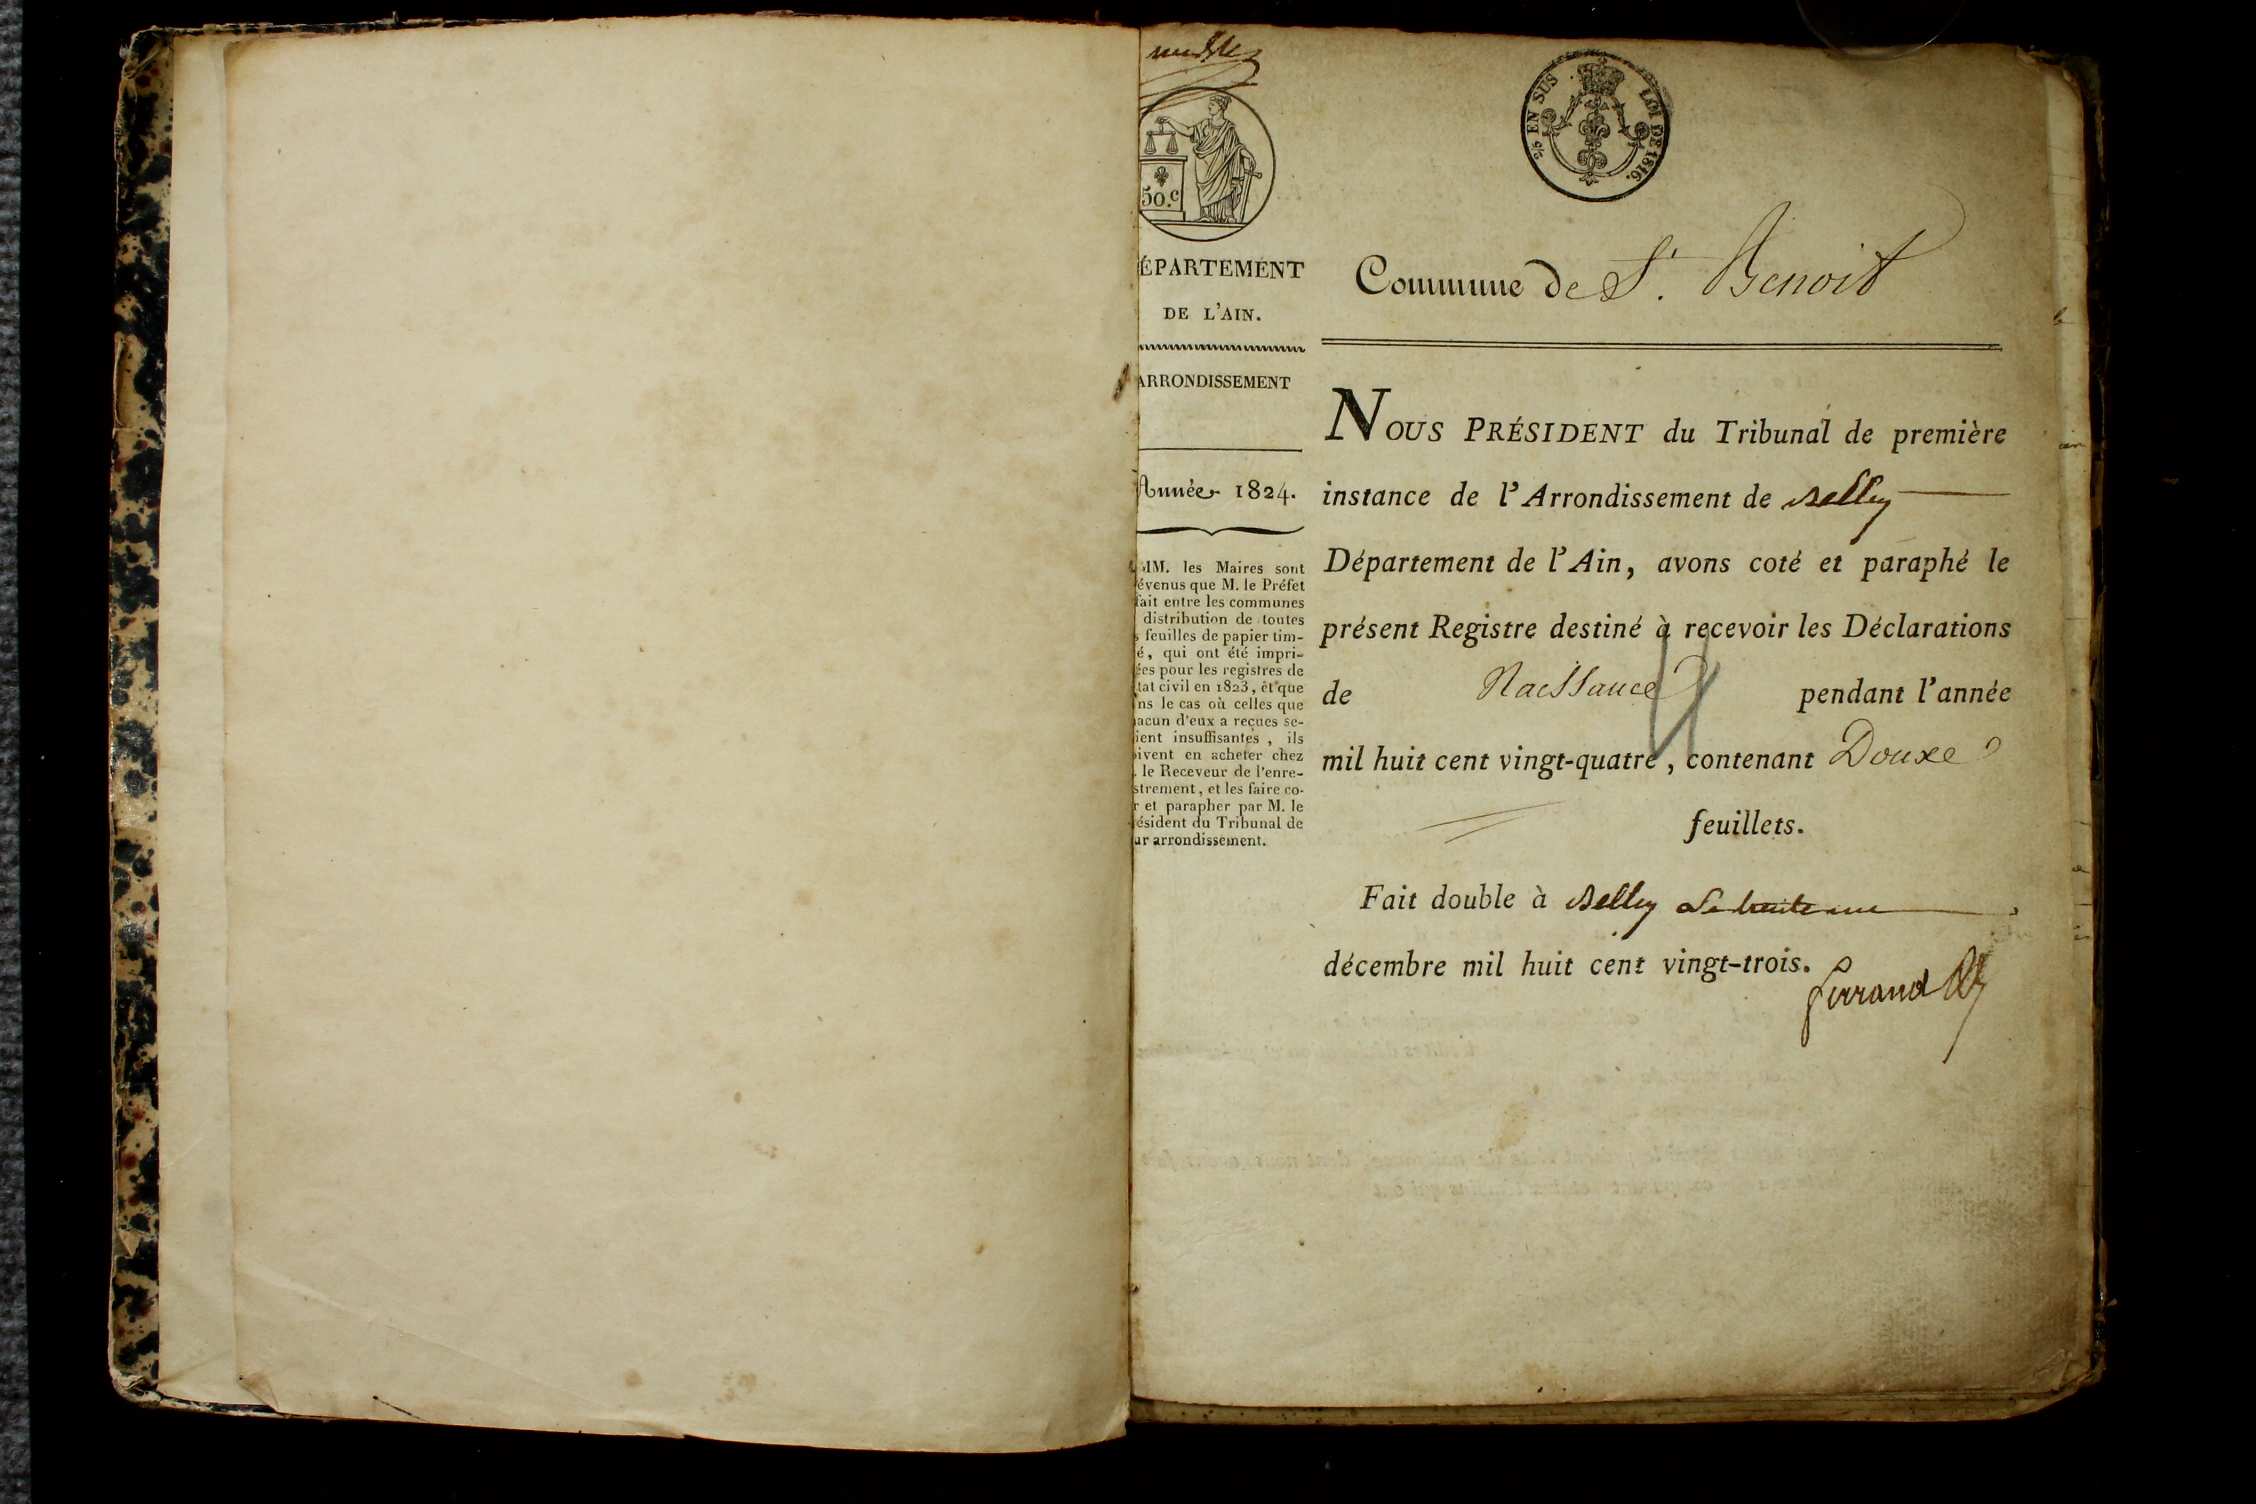 50.c
2/5 EN SUS LOI DE 1816.
ÉPARTEMENT
DE L'AIN.
ARRONDISSEMENT
Année 1824.
MM. les Maires sont
évenus que M. le Préfet
fait entre les communes
distribution de toutes
s feuilles de papier tim-
é, qui ont été impri-
ées pour les registres de
tat civil en 1823, et que
ns le cas où celles que
acun d'eux a reçues se-
ient insuffisantes, ils
ivent en acheter chez
. le Receveur de l'enre-
strement, et les faire co-
r et parapher par M. le
ésident du Tribunal de
ur arrondissement.
Commune de St. Benoit
NOUS PRÉSIDENT du Tribunal de première
instance de l'Arrondissement de Belley
Département de l'Ain, avons coté et paraphé le
présent Registre destiné à recevoir les Déclarations
de Naissance pendant l'année
mil huit cent vingt-quatre, contenant Douze
feuillets.
Fait double à Belley Le trente un
décembre mil huit cent vingt-trois.
ferrand